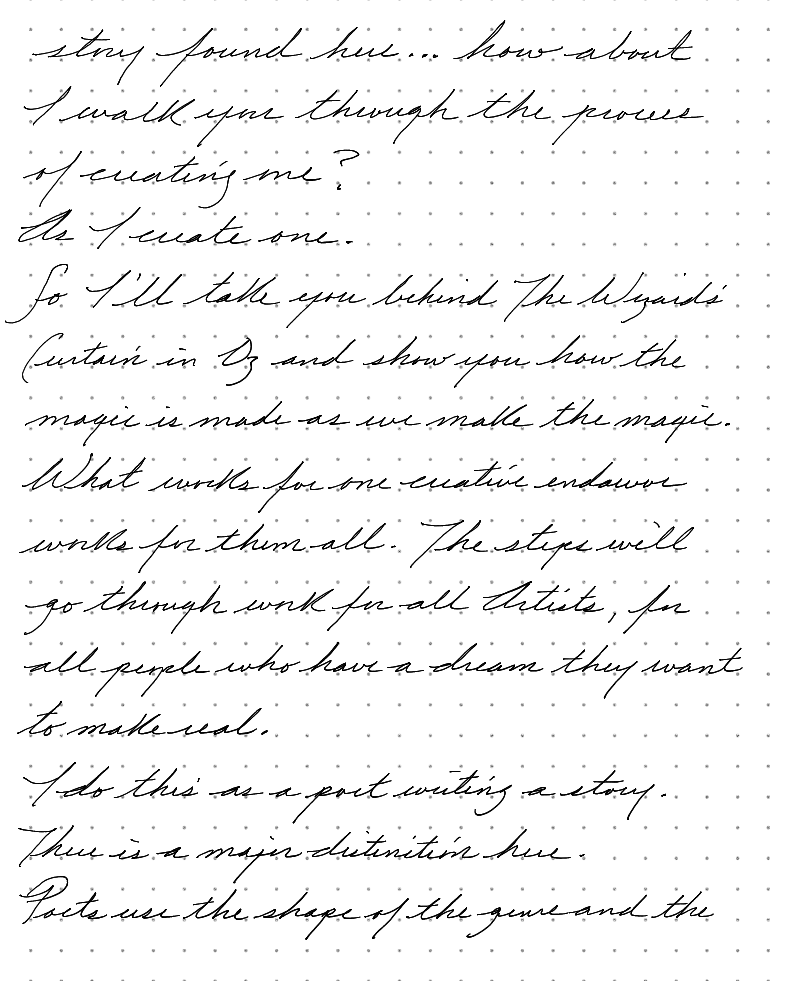 story found here... how about
I walk you through the process
of creating one?
As I create one.
So I'll take you behind The Wizards'
Curtain in Oz and show you how the
magic is made as we make the magic.
What works for one creative endavor
works for them all. The steps we'll
go through work for all Artists, for
all people who have a dream they want
to make real.
I do this as a poet writing a story.
There is a major distinition here.
Poets use the shape of the genre and the